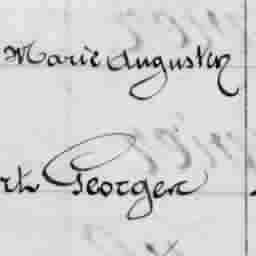 Marie Augustin
rt Georger